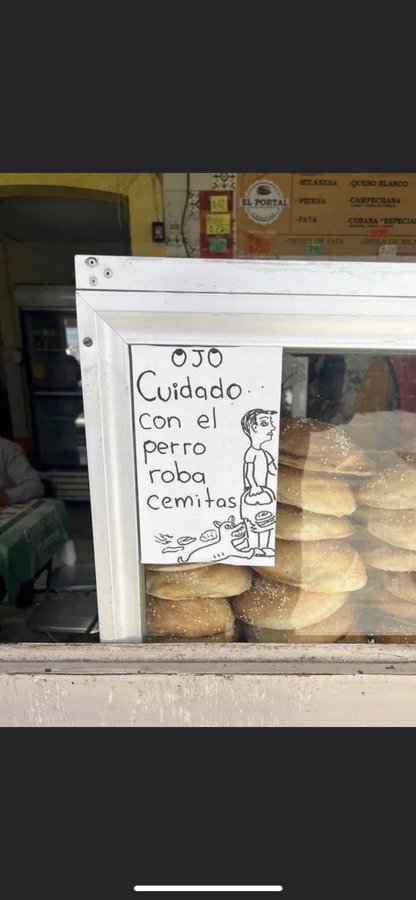 EL PORTAL
-MILANESA
-PIERNA
-PATA
-QUESO BLANCO
-CAMPECHANA
-CUBANA "ESPECIAL
-ORDEN DE PATA
OJO
Cuidado...
con el
perro
roba
cemitas